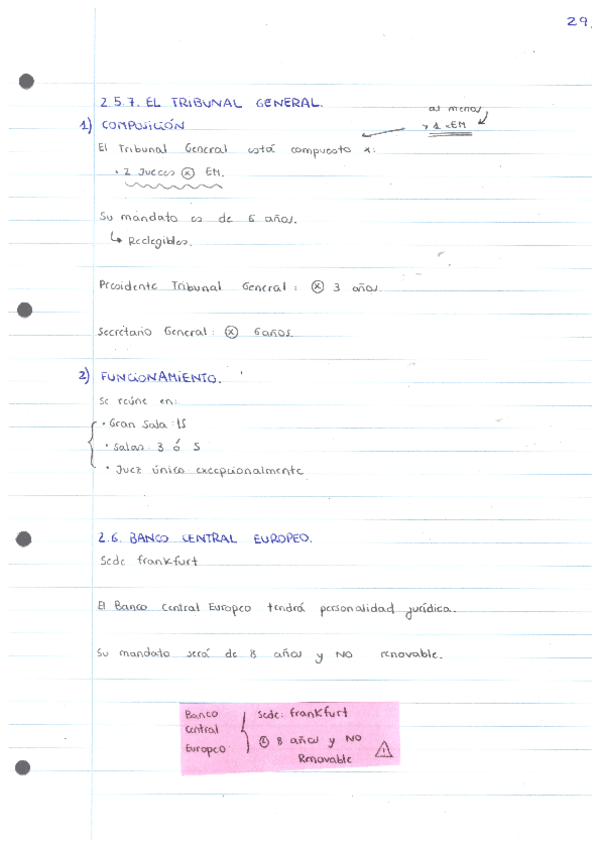 29.
2.5.7. EL TRIBUNAL GENERAL.
al menos
1) COMPOSICIÓN
> 1 x EM
El Tribunal General está compuesto x:
• 2 Jueces ⓧ EM.
Su mandato es de 6 años.
↳ Reelegibles.
Presidente Tribunal General: ⓧ 3 años.
Secretario General: ⓧ 6 años.
2) FUNCIONAMIENTO.
Se reúne en:
• Gran Sala: 15
• Salas: 3 ó 5
• Juez único excepcionalmente
2.6. BANCO CENTRAL EUROPEO.
Sede frankfurt
El Banco Central Europeo tendrá personalidad jurídica.
Su mandato será de 8 años y NO renovable.
Banco Central Europeo
Sede: frankfurt
8 años y NO
Renovable